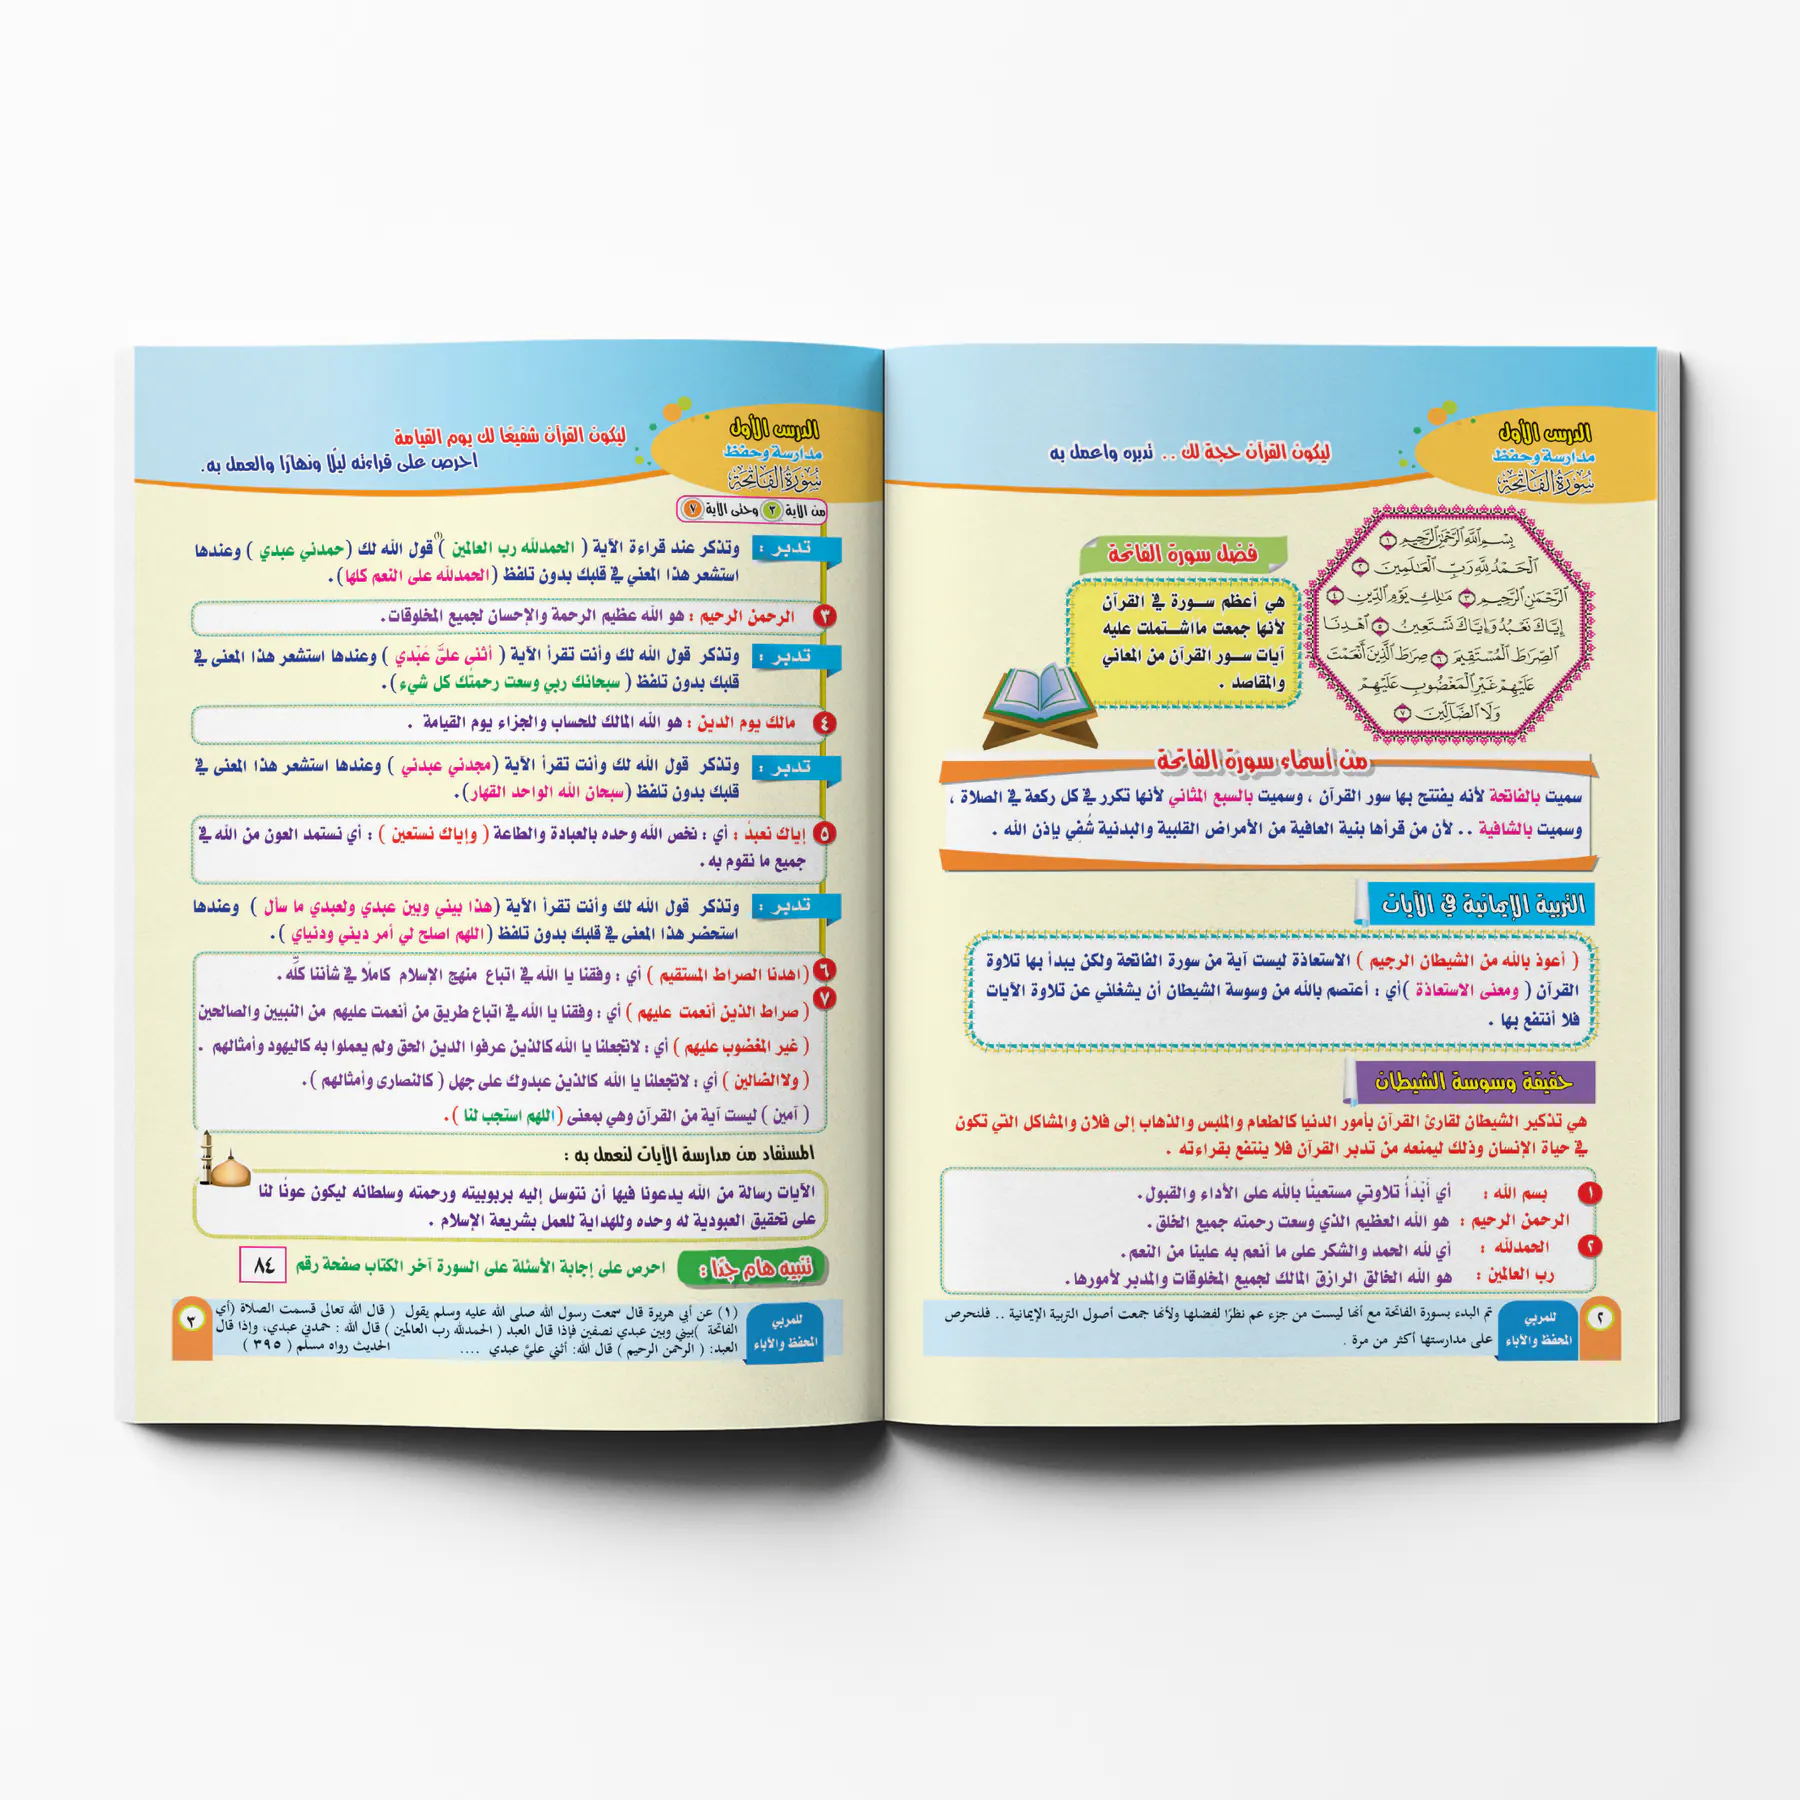 الدرس الأول
مدارسة وحفظ
سورة الفاتحة
ليكون القرآن حجة لك .. تدبره واعمل به
بِسْمِ ٱللَّهِ ٱلرَّحْمَٰنِ ٱلرَّحِيمِ ١
ٱلْحَمْدُ لِلَّهِ رَبِّ ٱلْعَٰلَمِينَ ٢
ٱلرَّحْمَٰنِ ٱلرَّحِيمِ ٣ مَٰلِكِ يَوْمِ ٱلدِّينِ ٤
إِيَّاكَ نَعْبُدُ وَإِيَّاكَ نَسْتَعِينُ ٥ ٱهْدِنَا
ٱلصِّرَٰطَ ٱلْمُسْتَقِيمَ ٦ صِرَٰطَ ٱلَّذِينَ أَنْعَمْتَ
عَلَيْهِمْ غَيْرِ ٱلْمَغْضُوبِ عَلَيْهِمْ
وَلَا ٱلضَّآلِّينَ ٧
فضل سورة الفاتحة
هي أعظم سورة في القرآن
لأنها جمعت مااشتملت عليه
آيات سور القرآن من المعاني
والمقاصد .
من أسماء سورة الفاتحة
سميت بالفاتحة لأنه يفتتح بها سور القرآن ، وسميت بالسبع المثاني لأنها تكرر في كل ركعة في الصلاة ،
وسميت بالشافية .. لأن من قرأها بنية العافية من الأمراض القلبية والبدنية شُفي بإذن الله .
التربية الإيمانية في الآيات
( أعوذ بالله من الشيطان الرجيم ) الاستعاذة ليست آية من سورة الفاتحة ولكن يبدأ بها تلاوة
القرآن ( ومعنى الاستعاذة )أي : أعتصم بالله من وسوسة الشيطان أن يشغلني عن تلاوة الآيات
فلا أنتفع بها .
حقيقة وسوسة الشيطان
هي تذكير الشيطان لقارئ القرآن بأمور الدنيا كالطعام والملبس والذهاب إلى فلان والمشاكل التي تكون
في حياة الإنسان وذلك ليمنعه من تدبر القرآن فلا ينتفع بقراءته .
١ بسم الله : أي أَبْدَأُ تلاوتي مستعينًا بالله على الأداء والقبول.
الرحمن الرحيم : هو الله العظيم الذي وسعت رحمته جميع الخلق.
٢ الحمدلله : أي لله الحمد والشكر على ما أنعم به علينا من النعم.
رب العالمين : هو الله الخالق الرازق المالك لجميع المخلوقات والمدبر لأمورها.
٢
للمربي
المحفظ والآباء
تم البدء بسورة الفاتحة مع أنها ليست من جزء عم نظرًا لفضلها ولأنها جمعت أصول التربية الإيمانية .. فلنحرص
على مدارستها أكثر من مرة .
الدرس الأول
مدارسة وحفظ
سورة الفاتحة
ليكون القرآن شفيعًا لك يوم القيامة
احرص على قراءته ليلًا ونهارًا والعمل به.
من الآية ٣ وحتى الآية ٧
تدبر : وتذكر عند قراءة الآية ( الحمدلله رب العالمين )(١) قول الله لك (حمدني عبدي ) وعندها
استشعر هذا المعني في قلبك بدون تلفظ (الحمدلله على النعم كلها).
٣ الرحمن الرحيم : هو الله عظيم الرحمة والإحسان لجميع المخلوقات.
تدبر : وتذكر قول الله لك وأنت تقرأ الآية ( أثني علىَّ عَبْدي ) وعندها استشعر هذا المعنى في
قلبك بدون تلفظ ( سبحانك ربي وسعت رحمتُك كل شيء ).
٤ مالك يوم الدين : هو الله المالك للحساب والجزاء يوم القيامة .
تدبر : وتذكر قول الله لك وأنت تقرأ الآية (مجدني عبدني ) وعندها استشعر هذا المعنى في
قلبك بدون تلفظ (سبحان الله الواحد القهار).
٥ إياك نعبدُ : أي : نخص الله وحده بالعبادة والطاعة ( وإياك نستعين ) : أي نستمد العون من الله في
جميع ما نقوم به .
تدبر : وتذكر قول الله لك وأنت تقرأ الآية (هذا بيني وبين عبدي ولعبدي ما سأل ) وعندها
استحضر هذا المعنى في قلبك بدون تلفظ (اللهم اصلح لي أمر ديني ودنياي ).
٦ (اهدنا الصراط المستقيم ) أي : وفقنا يا الله في اتباع منهج الإسلام كاملًا في شأننا كلِّه .
٧ ( صراط الذين أنعمت عليهم ) أي : وفقنا يا الله في اتباع طريق من أنعمت عليهم من النبيين والصالحين
( غير المغضوب عليهم ) أي : لاتجعلنا يا الله كالذين عرفوا الدين الحق ولم يعملوا به كاليهود وأمثالهم .
( ولاالضالين ) أي : لاتجعلنا يا الله كالذين عبدوك على جهل ( كالنصارى وأمثالهم ).
( آمين ) ليست آية من القرآن وهي بمعنى (اللهم استجب لنا ).
المستفاد من مدارسة الآيات لنعمل به :
الآيات رسالة من الله يدعونا فيها أن نتوسل إليه بربوبيته ورحمته وسلطانه ليكون عونًا لنا
على تحقيق العبودية له وحده وللهداية للعمل بشريعة الإسلام .
تنبيه هام جدًا : احرص على إجابة الأسئلة على السورة آخر الكتاب صفحة رقم ٨٤
للمربي
المحفظ والآباء
(١) عن أبي هريرة قال سمعت رسول الله صلى الله عليه وسلم يقول ( قال الله تعالى قسمت الصلاة (أي
الفاتحة )بيني وبين عبدي نصفين فإذا قال العبد ( الحمدلله رب العالمين ) قال الله : حمدني عبدي، وإذا قال
العبد: ( الرحمن الرحيم ) قال الله: أثني عليَّ عبدي .... الحديث رواه مسلم ( ٣٩٥ )
٣